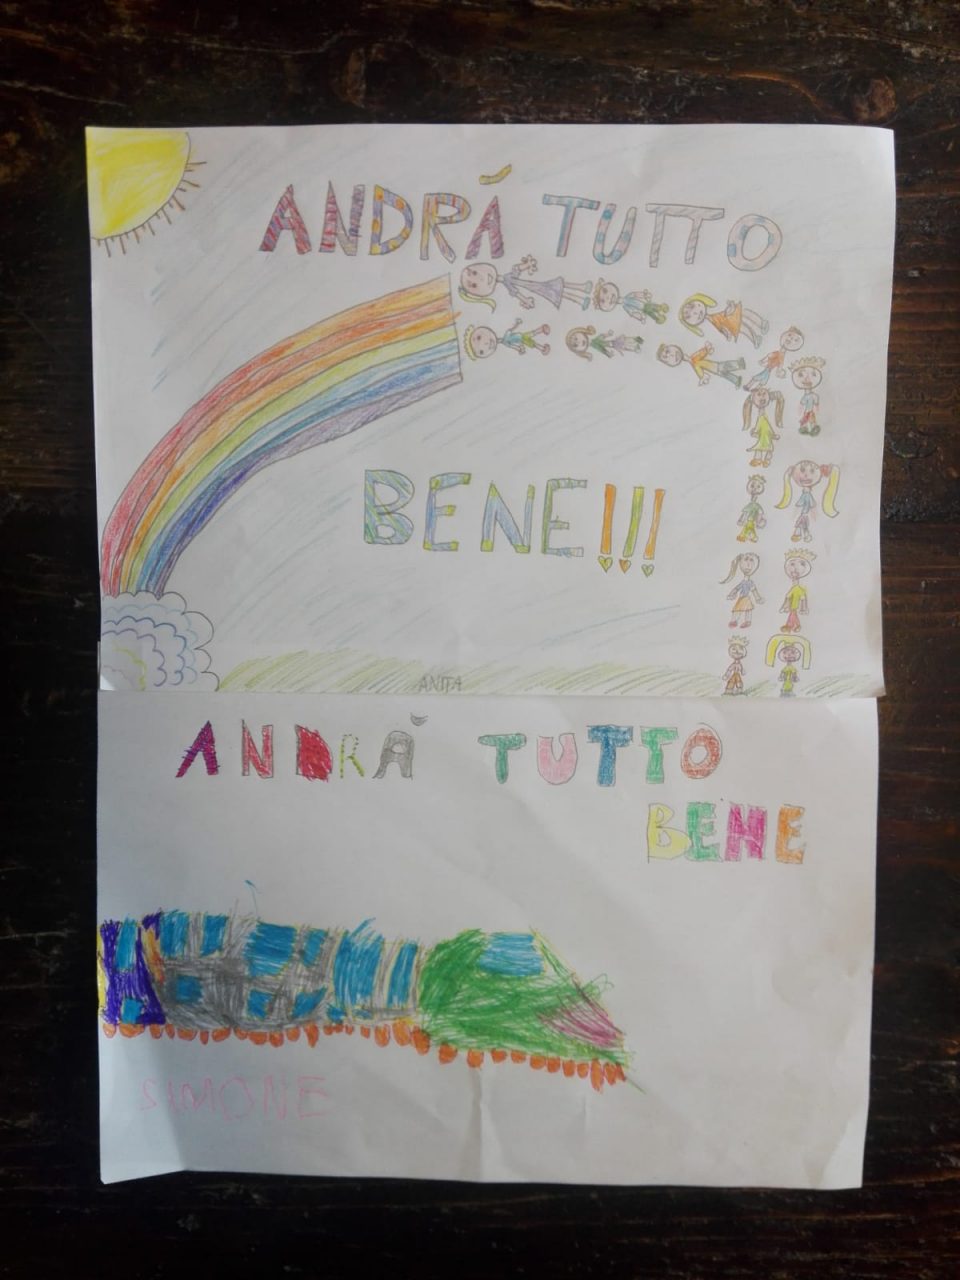 ANDRÁ TUTTO
BENE!!!
ANITA
ANDRĂ TUTTO
BENE
SIMONE